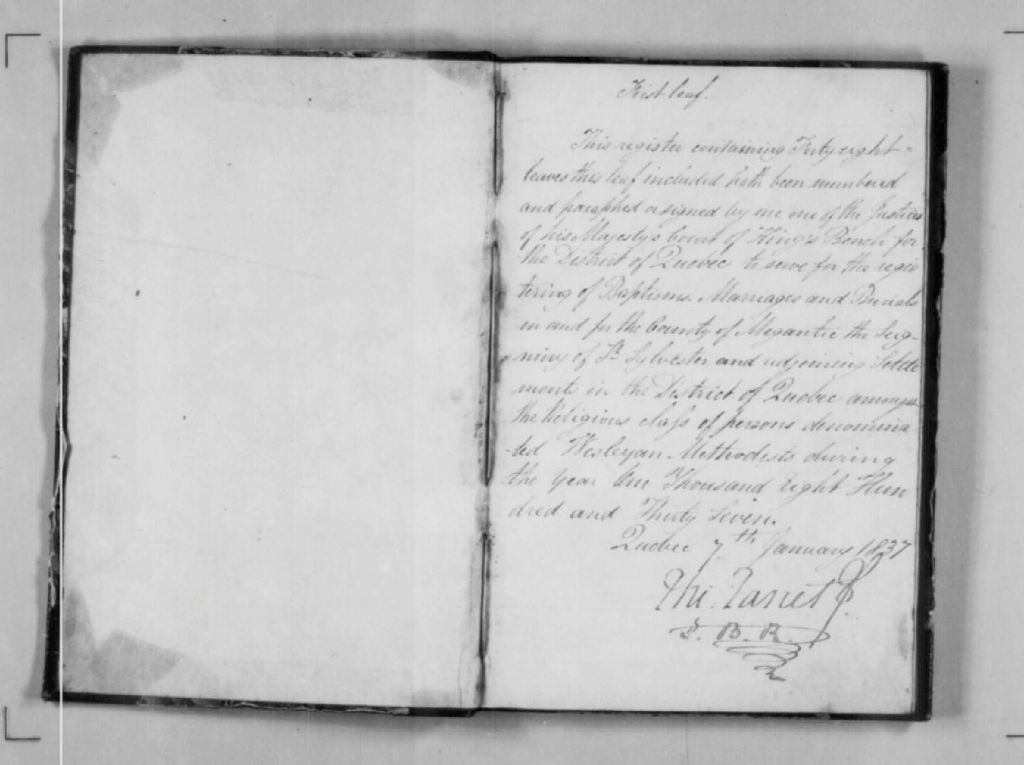 First leaf.
This register containing Forty eight
leaves this leaf included hath been numbered
and paraphed or signed by me one of the Justices
of his Majesty's Court of King's Bench for
the District of Quebec to serve for the regis
tering of Baptisms Marriages and Burials
in and for the County of Megantic the Seig-
niory of St Sylvester and adjoining Settle
ments in the District of Quebec amongst
the Religious class of persons denomina
-ted Wesleyan Methodists during
the year One Thousand Eight Hun
dred and Thirty Seven.
Quebec 7th January 1837
J. B. R.